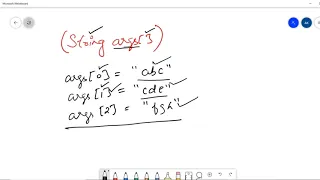 Microsoft Whiteboard
(String args[])
args[0] = "abc"
args[1] = "cde"
args[2] = "fgh"